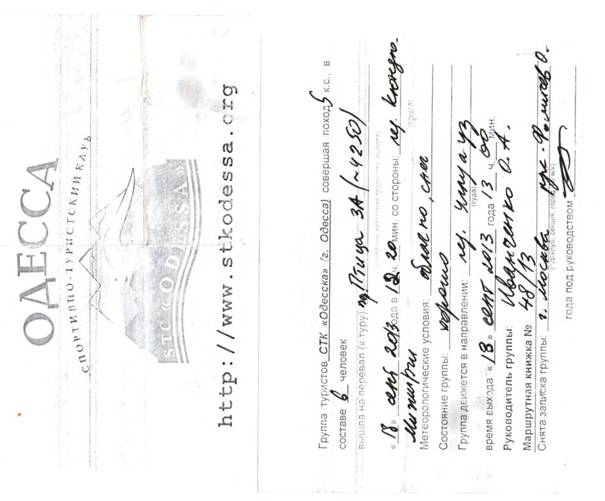 ОДЕССА
СПОРТИВНО-ТУРИСТСКИЙ КЛУБ
STC «ODESSA»
http://www.stkodessa.org
Группа туристов СТК «Одесска» (г. Одесса) совершая поход 5 к.с., в
составе 6 человек
вышла на перевал (к туру) пр Птица 3А (~4250)
«18» сент 2013 года в 12 ч. 20 мин. со стороны: лд.
Метеорологические условия: облачно, снег
Состояние группы: хорошо
Группа движется в направлении: лд.
(куда)
время выхода «18» сент 2013 года 13 ч. 00 мин.
Руководитель группы: Иванченко О. А.
Маршрутная книжка № 48/13
Снята записка группы: г. Москва
года под руководством